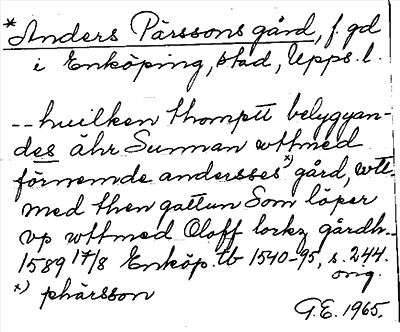 * Anders Pärssons gård, f. gd
i Enköping, stad, Upps. l.
-- huilken thomptt belygyan-
des åhr Sunnan wttmed
förnemde andersses x) gård, wtt-
med then gattun Som löper
vp wttmed Oloff lorkz gårdh --
1589 17/8 Enköp. tb 1540-95, s. 244.
org.
x) phärsson
G.E. 1965.